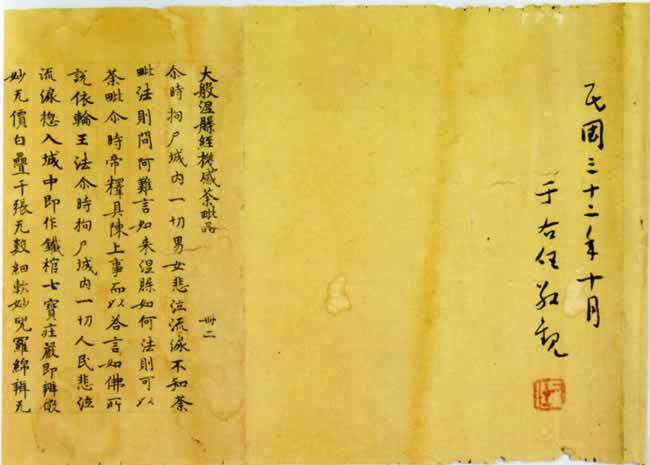 民國三十二年十月
于右任敬觀
大般涅槃經機感荼毗品 卌二
尒時拘尸城內一切男女悲泣流淚不知荼
毗法則問阿難言如来涅槃如何法則可以
荼毗尒時帝釋具陳上事而以荅言如佛所
說依輪王法尒時拘尸城內一切人民悲泣
流淚惣入城中即作鐵棺七寶莊嚴即辦微
妙无價白疊千張无數細軟妙兜羅綿辦无